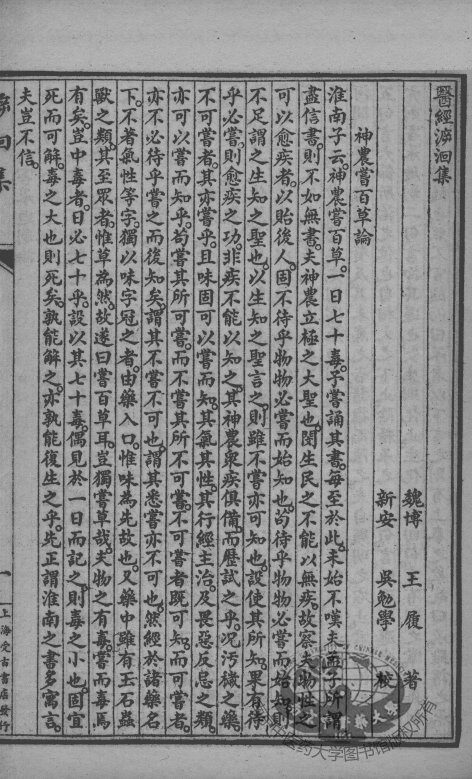 醫經泝洄集
魏博　王　履　著
新安　吳勉學　校
神農嘗百草論
淮南子云。神農嘗百草。一日七十毒。予嘗誦其書。每至於此。未始不嘆夫孟子所謂
盡信書。則不如無書。夫神農立極之大聖也。閔生民之不能以無疾。故察夫物性之
可以愈疾者。以貽後人。固不待乎物物必嘗而始知也。苟待乎物物必嘗而始知。則
不足謂之生知之聖也。以生知之聖言之。則雖不嘗亦可知也。設使其所知。果有待
乎必嘗。則愈疾之功。非疾不能以知之。其神農衆疾俱備。而歷試之乎。況污穢之藥。
不可嘗者。其亦嘗乎。且味固可以嘗而知。其氣其性。其行經主治。及畏惡反忌之類。
亦可以嘗而知乎。苟嘗其所可嘗。而不嘗其所不可嘗。不可嘗者既可知。而可嘗者。
亦不必待乎嘗之而後知矣。謂其不嘗不可也。謂其悉嘗亦不可也。然經於諸藥名
下。不著氣性等字。獨以味字冠之者。由藥入口。惟味為先故也。又藥中雖有玉石蟲
獸之類。其至眾者。惟草為然。故遂曰嘗百草耳。豈獨嘗草哉。夫物之有毒。嘗而毒焉
有矣。豈中毒者。日必七十乎。設以其七十毒。偶見於一日而記之。則毒之小也。固宜
死而可解。毒之大也則死矣。孰能解之。亦孰能復生之乎。先正謂淮南之書多寓言。
夫豈不信。
洄集
一
上海受古書店發行
中醫药大学图书馆版权所有